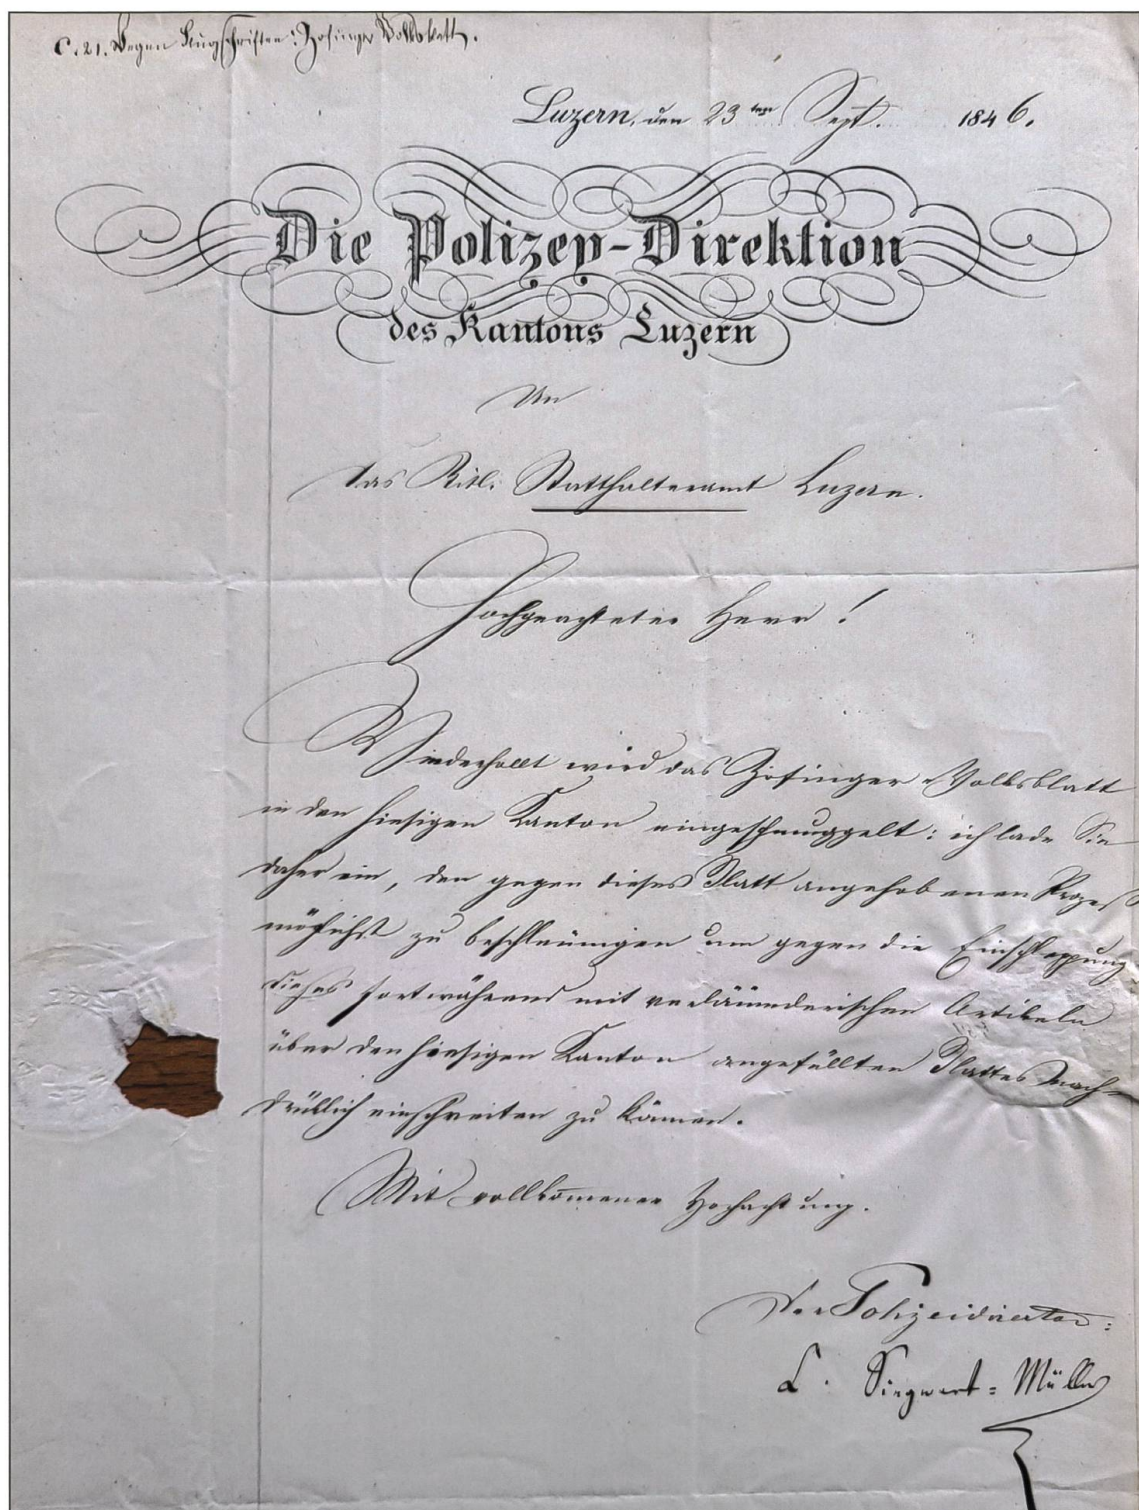 C. 21. Wegen Flugschriften: Zofinger Volksblatt.
Luzern, den 23ten Sept. 1846.
Die Polizey-Direktion
des Kantons Luzern
An
das Titl: Statthalteramt Luzern.
Hochgeachteter Herr!
Wiederhollt wird das Zofinger Volksblatt
in den hiesigen Kanton eingeschmuggelt: ich lade Sie
daher ein, den gegen dieses Blatt angehobenen Prozeß
möglichst zu beschleunigen um gegen die Einschleppung
dieses fortwährend mit verläumderischen Artikeln
über den hiesigen Kanton angefüllten Blattes nach-
drücklich einschreiten zu können.
Mit vollkommener Hochachtung.
Der Polizeidirektor:
C. Siegwart=Müller